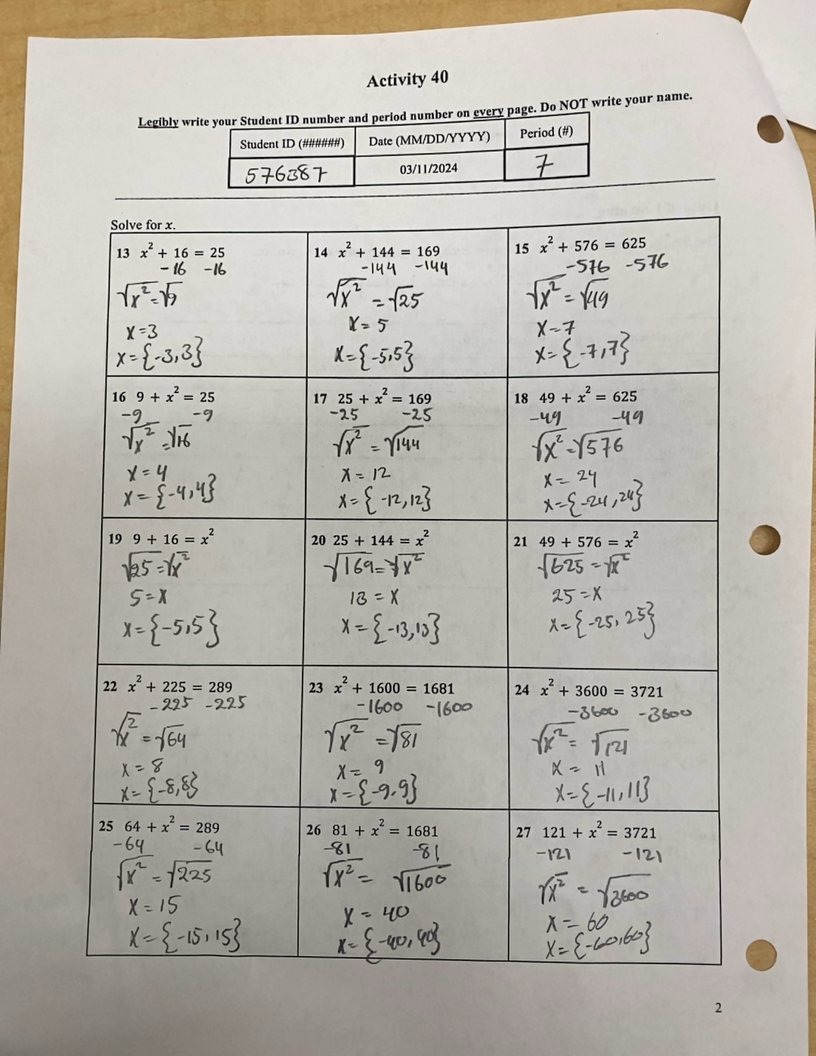 Activity 40
Legibly write your Student ID number and period number on every page. Do NOT write your name.
Student ID (######) Date (MM/DD/YYYY) Period (#)
576387 03/11/2024 7
Solve for x.
13 x² + 16 = 25
-16 -16
√x² = √9
x = 3
x = {-3,3}
14 x² + 144 = 169
-144 -144
√x² = √25
x = 5
x = {-5,5}
15 x² + 576 = 625
-576 -576
√x² = √49
x = 7
x = {-7,7}
16 9 + x² = 25
-9 -9
√x² = √16
x = 4
x = {-4,4}
17 25 + x² = 169
-25 -25
√x² = √144
x = 12
x = {-12,12}
18 49 + x² = 625
-49 -49
√x² = √576
x = 24
x = {-24,24}
19 9 + 16 = x²
√25 = √x²
5 = x
x = {-5,5}
20 25 + 144 = x²
√169 = √x²
13 = x
x = {-13,13}
21 49 + 576 = x²
√625 = √x²
25 = x
x = {-25,25}
22 x² + 225 = 289
-225 -225
√x² = √64
x = 8
x = {-8,8}
23 x² + 1600 = 1681
-1600 -1600
√x² = √81
x = 9
x = {-9,9}
24 x² + 3600 = 3721
-3600 -3600
√x² = √121
x = 11
x = {-11,11}
25 64 + x² = 289
-64 -64
√x² = √225
x = 15
x = {-15,15}
26 81 + x² = 1681
-81 -81
√x² = √1600
x = 40
x = {-40,40}
27 121 + x² = 3721
-121 -121
√x² = √3600
x = 60
x = {-60,60}
2